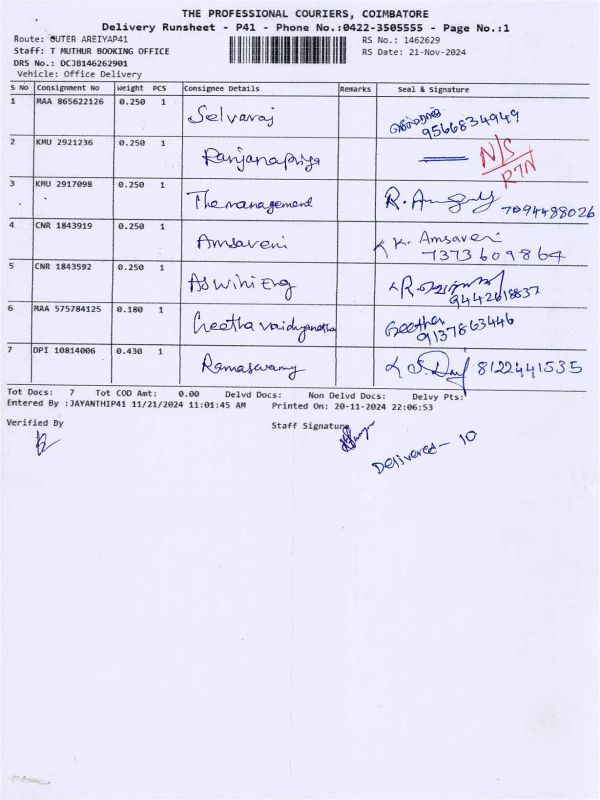 THE PROFESSIONAL COURIERS, COIMBATORE
Delivery Runsheet - P41 - Phone No.:0422-3505555 - Page No.:1
Route: OUTER AREIYAP41 RS No.: 1462629
Staff: T MUTHUR BOOKING OFFICE RS Date: 21-Nov-2024
DRS No.: DCJ8146262901
Vehicle: Office Delivery
S No Consignment No Weight PCS Consignee Details Remarks Seal & Signature
1 MAA 865622126 0.250 1 Selvaraj 9566834949
2 KMU 2921236 0.250 1 Ranjanapriya N/S RTN
3 KMU 2917098 0.250 1 The management R. 7094488026
4 CNR 1843919 0.250 1 Amsaveni K. Amsaveni 7373609864
5 CNR 1843592 0.250 1 Aswini Eng 9442618837
6 MAA 575784125 0.180 1 Geetha vaidyanatha Geetha 9137863446
7 DPI 10814006 0.430 1 Ramaswamy 8122441535
Tot Docs: 7 Tot COD Amt: 0.00 Delvd Docs: Non Delvd Docs: Delvy Pts:
Entered By :JAYANTHIP41 11/21/2024 11:01:45 AM Printed On: 20-11-2024 22:06:53
Verified By Staff Signature
Delivered - 10